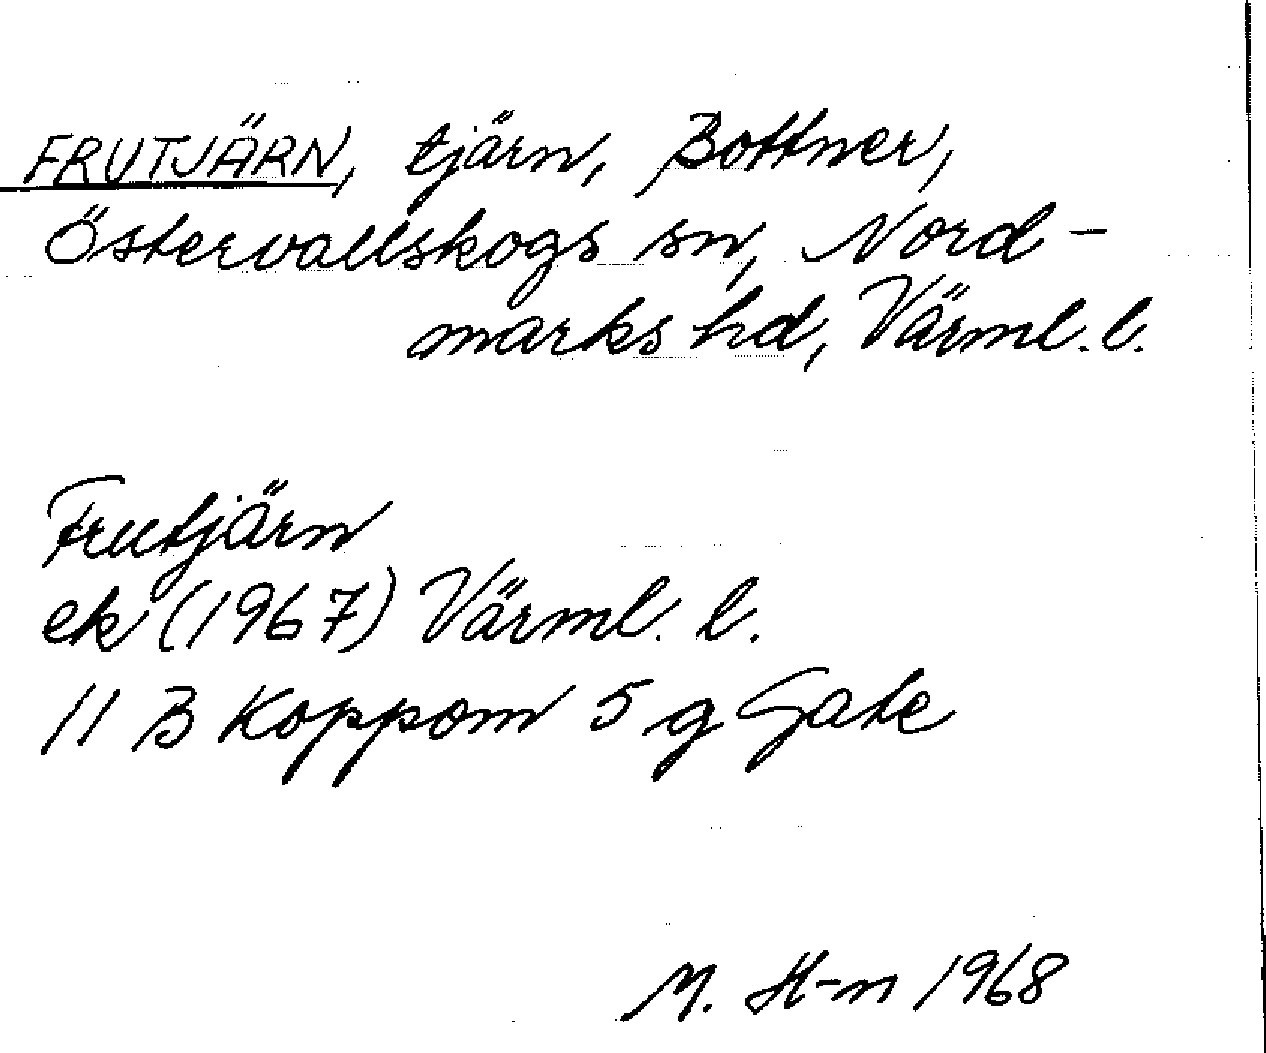 FRUTJÄRN, tjärn, Bottner,
Östervallskogs sn, Nord-
marks hd, Värml. l.
Frutjärn
ek (1967) Värml. l.
11 B Koppom 5 g Gate
M. H-m 1968